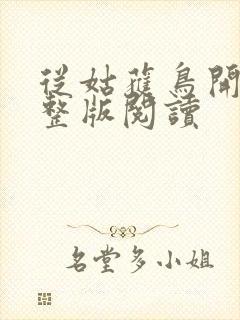 從姑蘇鳥開
整版閱讀
名堂多小姐